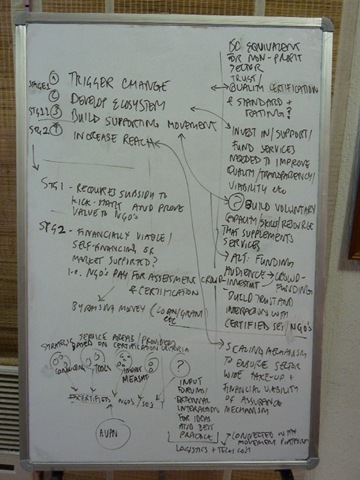 STAGE 1 ① TRIGGER CHANGE
② DEVELOP ECOSYSTEM
STG 1 ③ BUILD SUPPORTING MOVEMENT
STG 2 ④ INCREASE REACH
STG 1 - REQUIRES SUBSIDY TO
KICK-START AND PROVE
VALUE TO NGO'S
STG 2 - FINANCIALLY VIABLE /
SELF-FINANCING OR
MARKET SUPPORTED?
I.E. NGO'S PAY FOR ASSESSMENT
& CERTIFICATION
BY RAISING MONEY (LOAN/GRANT
ETC
SERVICE AREAS (PROVIDERS
BASED ON CERTIFICATION CRITERIA
TOOLS
MEASMT
?
CERTIFIED NGO'S / SE'S
INPUT
FORUM/
EXTERNAL
INTERACTION
FOR IDEAS
AND BEST
PRACTICE
EQUIVALENT
FOR NON-PROFIT
SECTOR
TRUST/
QUALITY CERTIFICATION
& STANDARD +
RATING?
INVEST IN/SUPPORT/
FUND SERVICES
NEEDED TO IMPROVE
QUALITY/TRANSPARENCY/
VIABILITY ETC
? BUILD VOLUNTARY
CAPACITY/SKILL/RESOURCE
THAT SUPPLEMENTS
SERVICES
ALT: FUNDING
AUDIENCE → CROWD-
FUNDING
CROWD-
INVESTMENT
BUILD TRUST AND
INTERACTIONS WITH
CERTIFIED SE'S/NGO'S
SCALING MECHANISM
TO ENSURE SECTOR
WIDE TAKE-UP +
FINANCIAL VIABILITY
OF ASSURANCE
MECHANISM
CONNECTED WITH
MOVEMENT PLATFORM
LOGISTICS + TECH COST